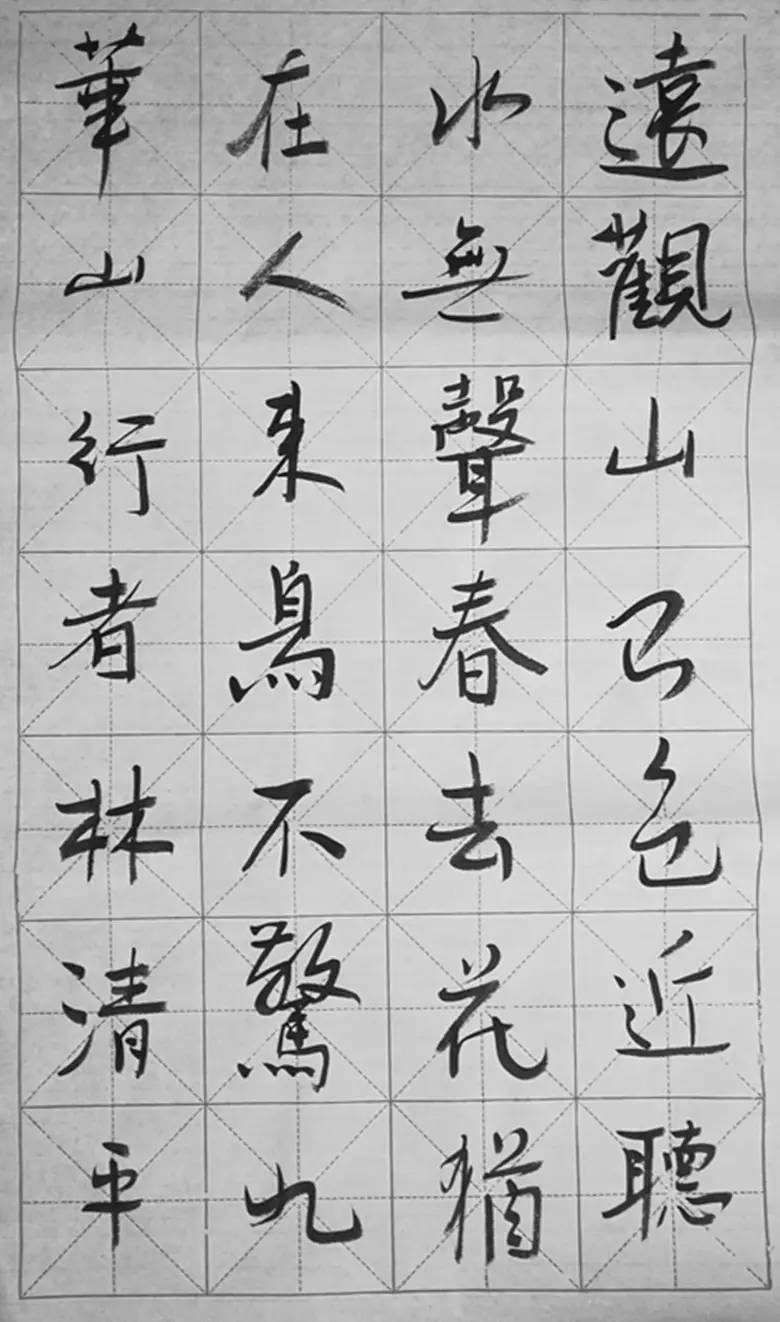 遠觀山有色近聽
水無聲春去花猶
在人來鳥不驚九
華山行者林清平